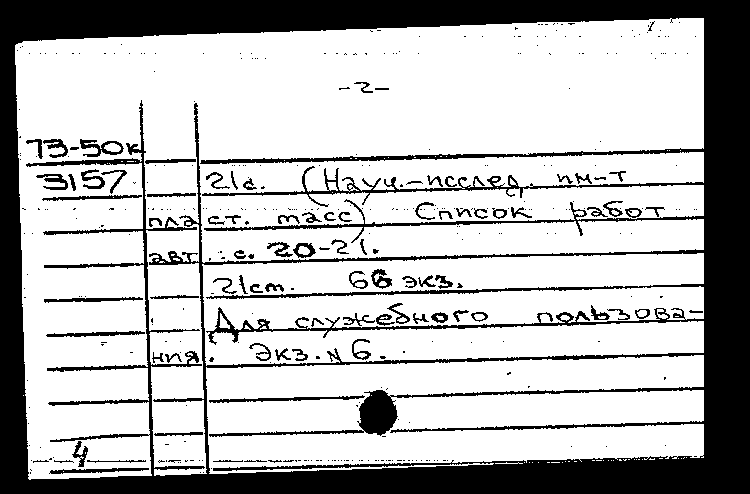 -2-
73-50к
3157 21с. (Науч.-исслед. ин-т
пласт. масс) Список работ
авт.: с. 20-21.
21см. 66 экз.
Для служебного пользова-
ния. Экз. N 6.
4